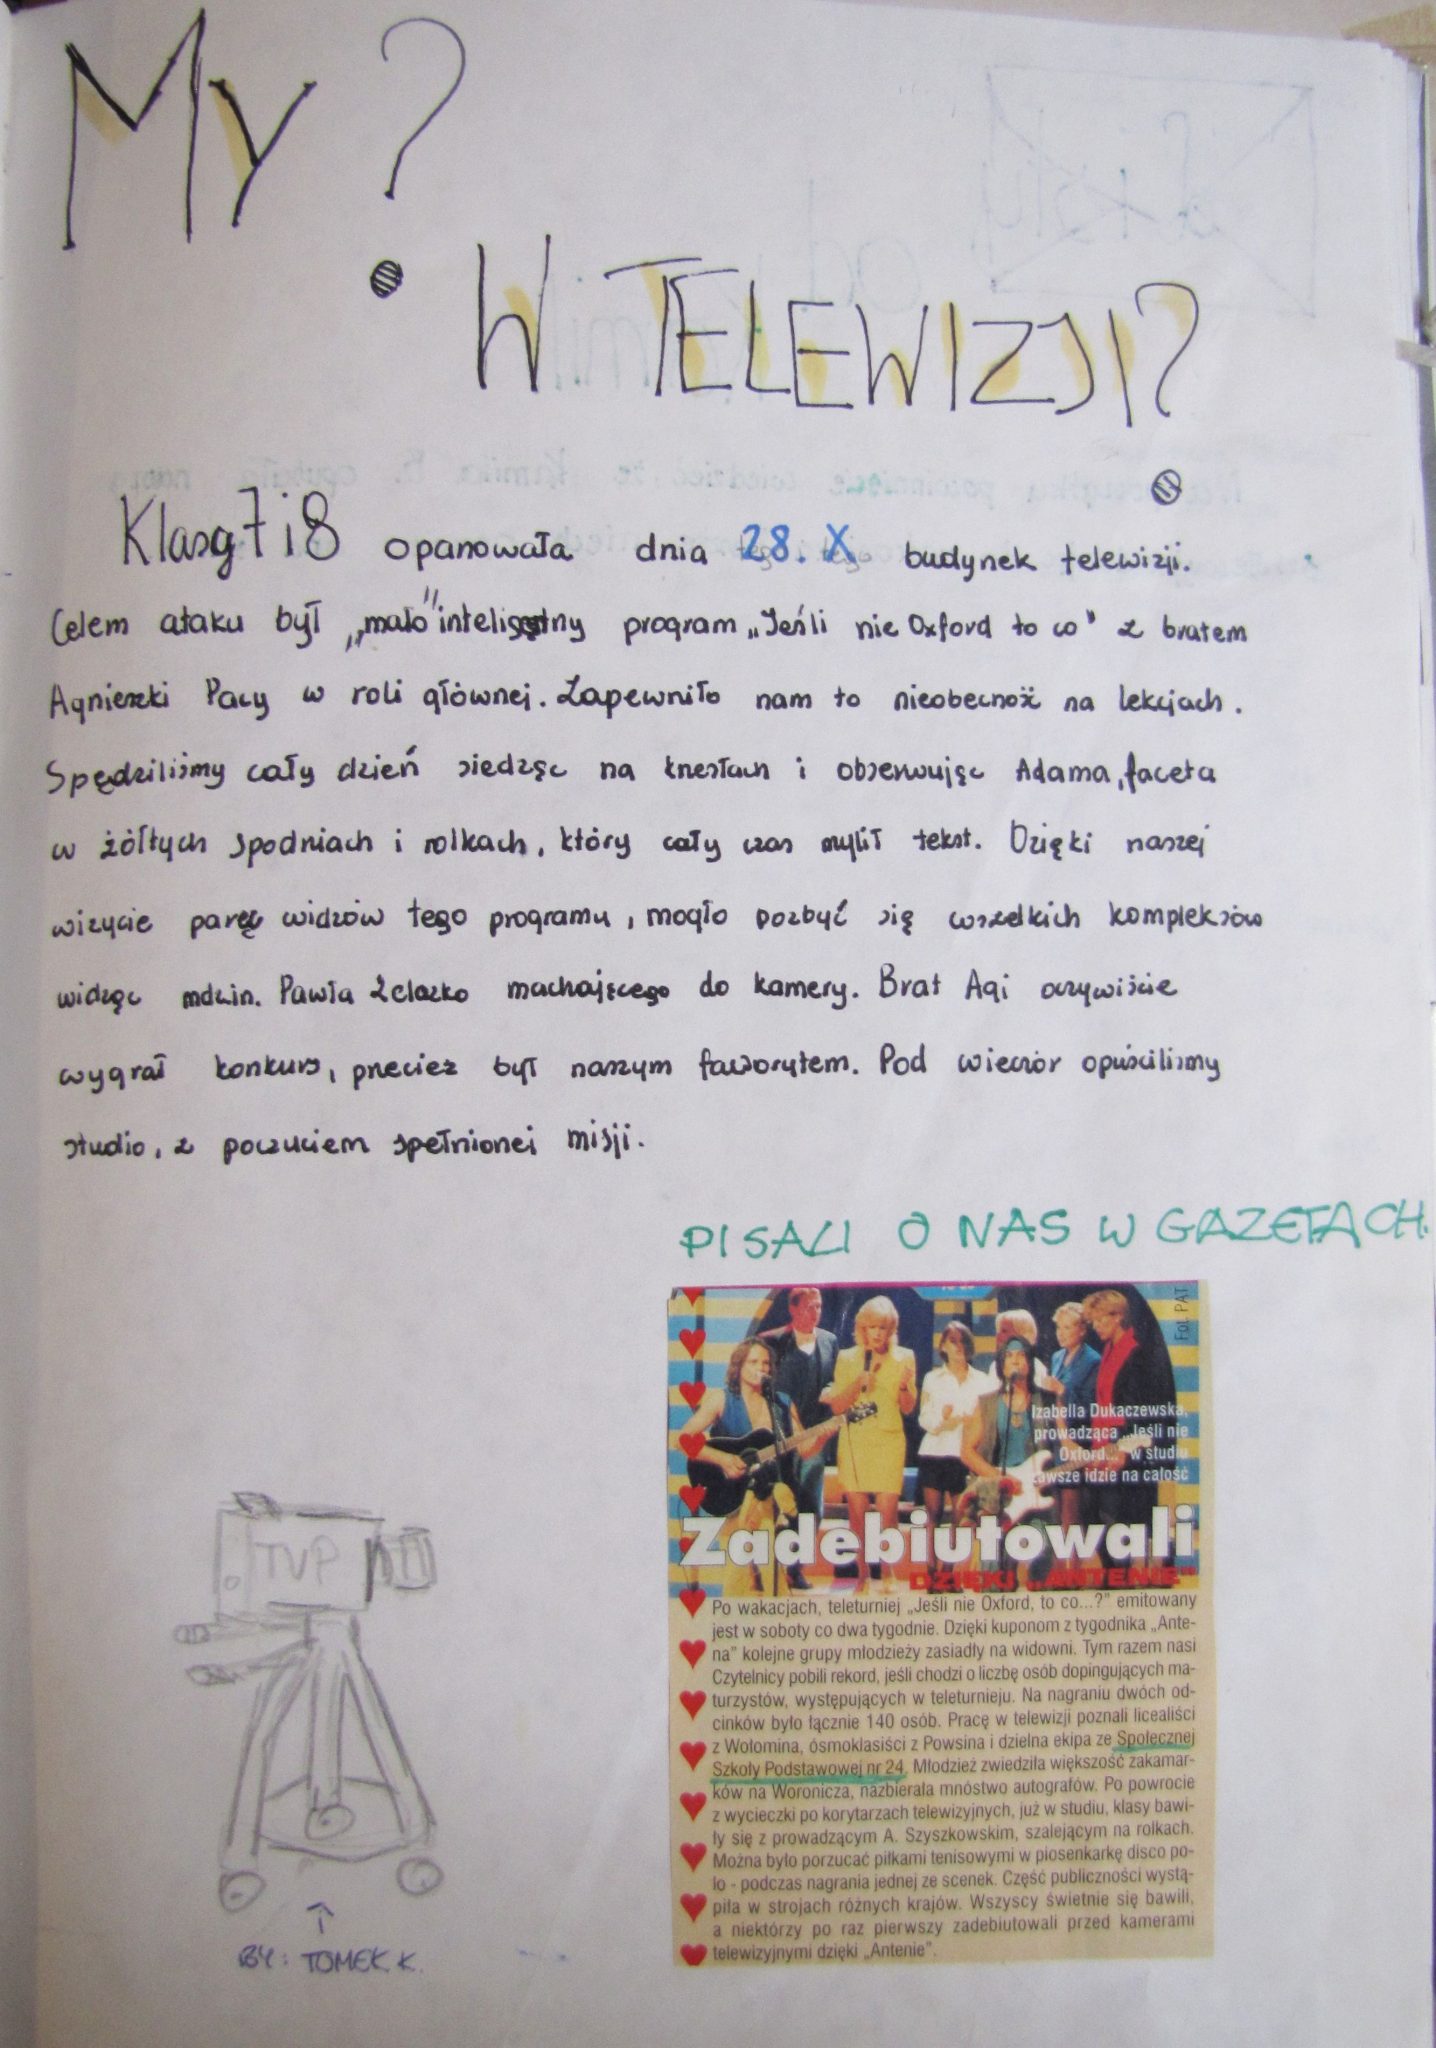 MY?
W TELEWIZJI?
Klasa 7 i 8 opanowała dnia 28. X budynek telewizji.
Celem ataku był „mało" inteligetny program „Jeśli nie Oxford to co" z bratem
Agnieszki Pacy w roli głównej. Zapewniło nam to nieobecność na lekcjach.
Spędziliśmy cały dzień siedząc na krzesłach i obserwując Adama, faceta
w żółtych spodniach i rolkach, który cały czas mylił tekst. Dzięki naszej
wizycie parę widzów tego programu, mogło pozbyć się wszelkich kompleksów
widząc mdzin. Pawła Żelazko machającego do kamery. Brat Agi oczywiście
wygrał konkurs, przecież był naszym faworytem. Pod wieczór opuściliśmy
studio, z poczuciem spełnionej misji.
PISALI O NAS W GAZETACH.
Fot. PAT
Izabella Dukaczewska,
prowadząca „Jeśli nie
Oxford..." w studiu
zawsze idzie na całość
Zadebiutowali
DZIĘKI „ANTENIE"
Po wakacjach, teleturniej „Jeśli nie Oxford, to co...?" emitowany
jest w soboty co dwa tygodnie. Dzięki kuponom z tygodnika „Ante-
na" kolejne grupy młodzieży zasiadły na widowni. Tym razem nasi
Czytelnicy pobili rekord, jeśli chodzi o liczbę osób dopingujących ma-
turzystów, występujących w teleturnieju. Na nagraniu dwóch od-
cinków było łącznie 140 osób. Pracę w telewizji poznali licealiści
z Wołomina, ósmoklasiści z Powsina i dzielna ekipa ze Społecznej
Szkoły Podstawowej nr 24. Młodzież zwiedziła większość zakamar-
ków na Woronicza, nazbierała mnóstwo autografów. Po powrocie
z wycieczki po korytarzach telewizyjnych, już w studiu, klasy bawi-
ły się z prowadzącym A. Szyszkowskim, szalejącym na rolkach.
Można było porzucać piłkami tenisowymi w piosenkarkę disco po-
lo - podczas nagrania jednej ze scenek. Część publiczności wystą-
piła w strojach różnych krajów. Wszyscy świetnie się bawili,
a niektórzy po raz pierwszy zadebiutowali przed kamerami
telewizyjnymi dzięki „Antenie".
TVP
BY: TOMEK. K.